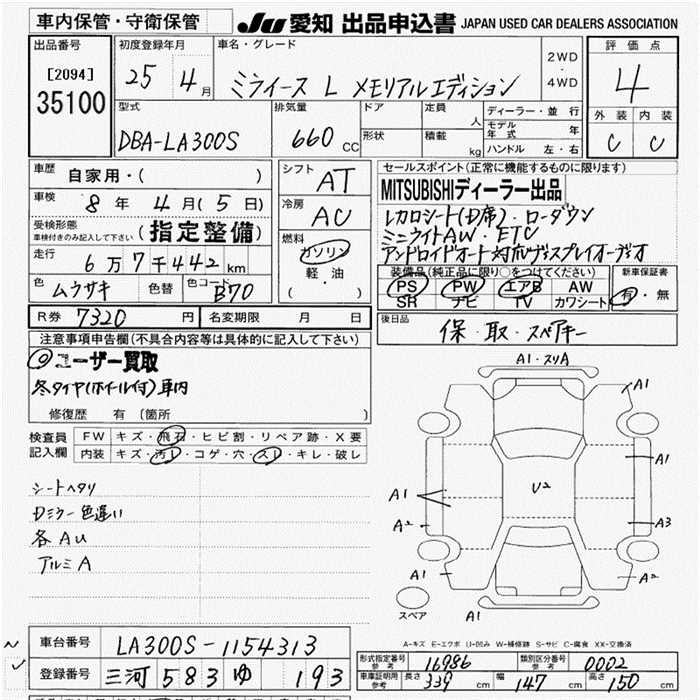 車内保管・守衛保管 JU 愛知 出品申込書 JAPAN USED CAR DEALERS ASSOCIATION
出品番号 初度登録年月 車名・グレード 評価点
[2094] 35100 25 4月 ミライース L メモリアルエディション 2WD・4WD 4
型式 排気量 ドア 定員 人 ディーラー・並行 外装 内装
DBA-LA300S 660 CC 形状 積載 kg モデル年式 年 C C
ハンドル 左・右
車歴 自家用・( ) シフト AT セールスポイント(正常に機能するものに限ります)
車検 8年 4月(5日) 冷房 AC MITSUBISHIディーラー出品
受検形態 車検付きのみ記入して下さい (指定整備) レカロシート(D席)・ローダウン
燃料 ガソリン ミニライトAW・ETC
走行 6万7千442km 軽・油 アンドロイドオート
( ) 装備品(純正品に限り○をつけてください) 新車保証書
色 ムラサキ 色替 色コード B70 PS PW エアB AW 有・無
SR ナビ TV カワシート
R券 7320円 名変期限 月 日 後日品 保・取・スペアキー
注意事項申告欄(不具合内容等は具体的に記入して下さい)
ユーザー買取
冬タイヤ(ホイール付)車内
修復歴 有 (箇所 )
検査員記入欄 FW キズ・飛石・ヒビ割・リペア跡・X要
内装 キズ・汚レ・コゲ・穴・スレ・キレ・破レ
シートヘタリ
Dミラー色違い
各AU
アルミA
A1・スリA
A1
A1
A1
U2
A2
A3
A1
A2
スペア
A1
A-キズ E-エクボ U-凹み W-補修跡 S-サビ C-腐食 XX-交換済
車台番号 LA300S-1154313
登録番号 三河 583 ゆ 193
形式指定番号 参考 16986 類別区分番号 参考 0002
車庫証明用 参考 長さ 339cm 幅 147cm 高さ 150cm